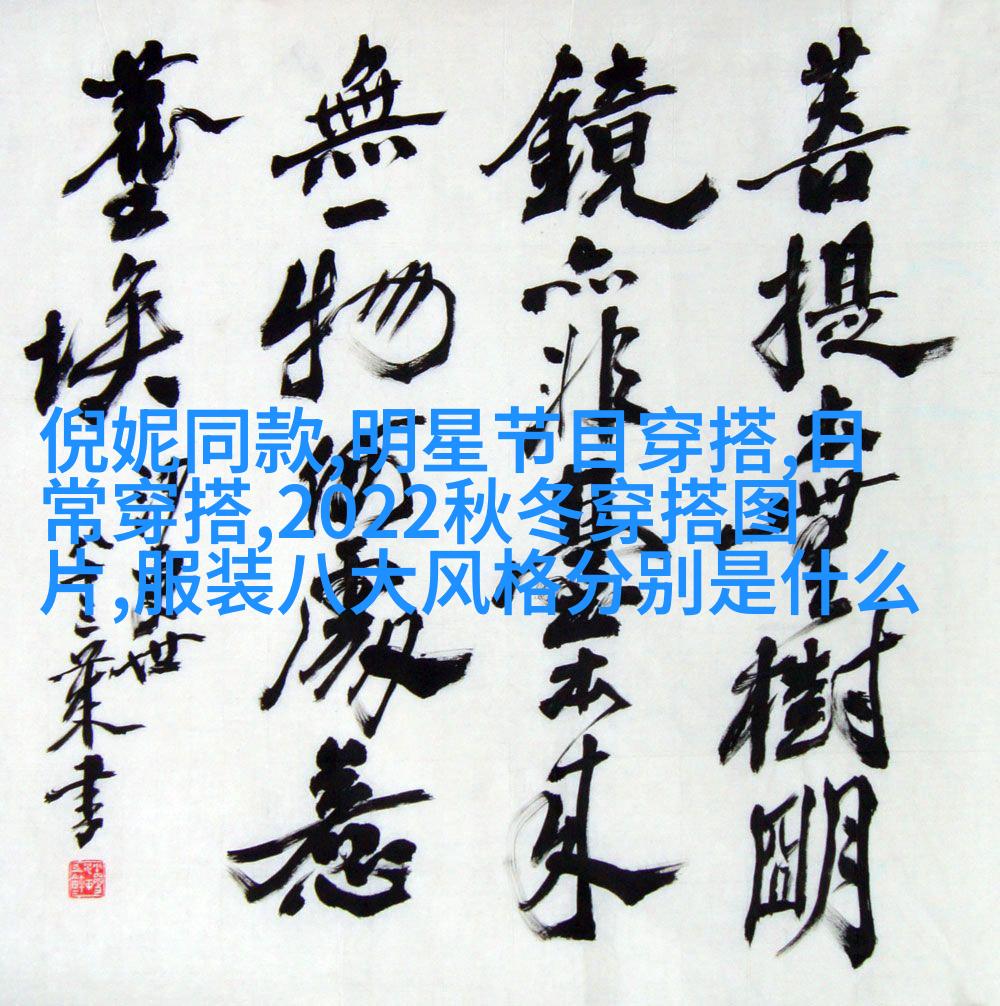 倪妮同款,明星节目穿搭,日
常穿搭,2022秋冬穿搭图
片,服装八大风格分别是什么
菩提無樹明
鏡亦非臺本来
無一物何處惹
塵埃
葉書